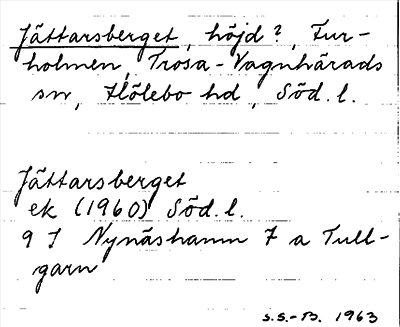 Jättarsberget, höjd?, Fur-
holmen, Trosa-Vagnhärads
sn, Hölebo hd, Söd. l.
Jättarsberget
ek (1960) Söd. l.
9 I Nynäshamn 7 a Tull-
garn
S.S.-B. 1963